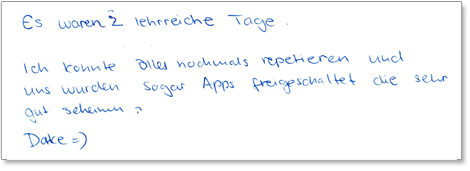 Es waren 2 lehrreiche Tage.
Ich konnte alles nochmals repetieren und
uns wurden sogar Apps freigeschaltet die sehr
gut scheinen.
Dake =)